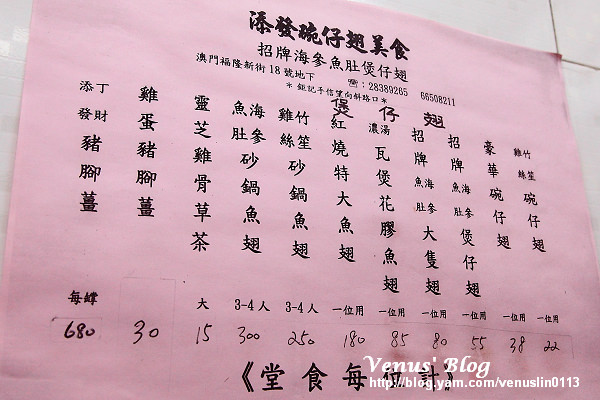 添發碗仔翅美食
招牌海參魚肚煲仔翅
澳門福隆新街18號地下 ☎:28389265 66508211
＊鉅記手信望向斜路口＊
煲仔翅
竹笙雞絲碗仔翅 一位用 22
豪華碗仔翅 一位用 38
招牌海參魚肚煲仔翅 一位用 55
招牌海參魚肚大隻翅 一位用 80
濃湯瓦煲花膠魚翅 一位用 85
紅燒特大魚翅 一位用 180
竹笙雞絲砂鍋魚翅 3-4人 250
海參魚肚砂鍋魚翅 3-4人 300
靈芝雞骨草茶 大 15
雞蛋豬腳薑 30
添丁發財豬腳薑 每罉 680
《堂食每位計》
Venus' Blog
http://blog.yam.com/venuslin0113